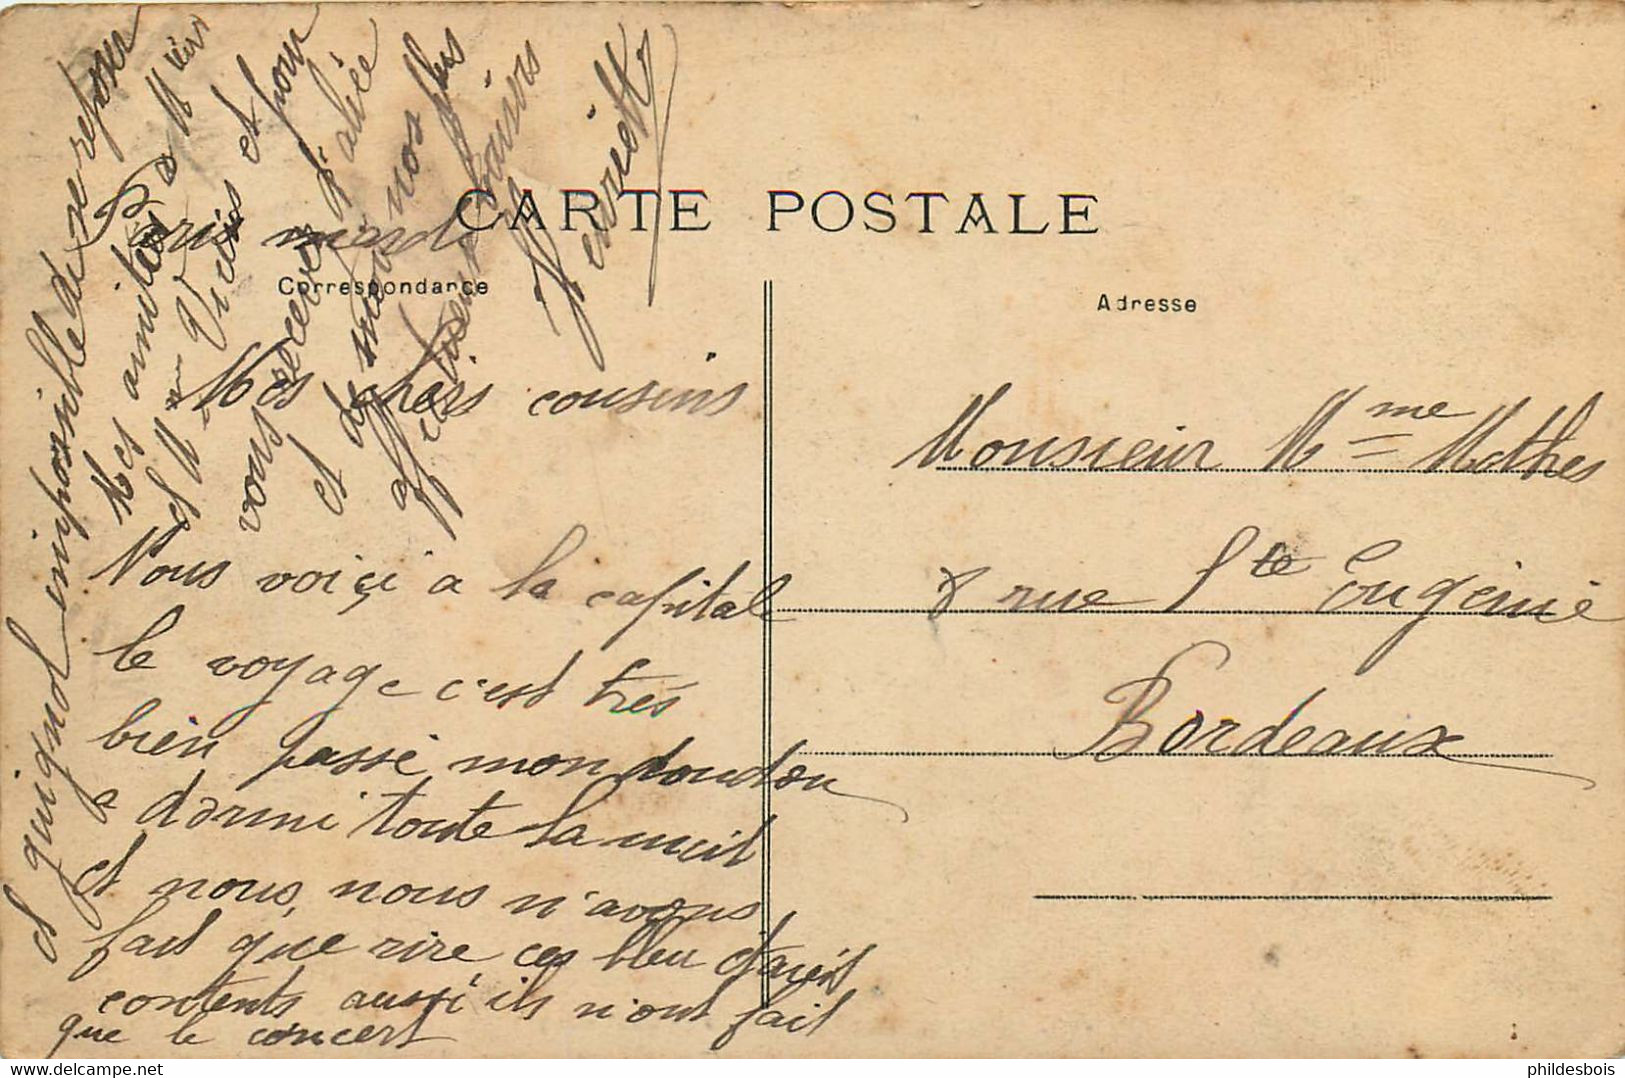 CARTE POSTALE
Correspondance
Adresse
Paris mardi
Mes chers cousins
Nous voiçi a la capital
le voyage c'est trés
bien passé mon doudou
a dormi toute la nuit
et nous, nous n'avons
fait que rire ces bleu étaient
contents aussi ils n'ont fait
que le concert
impossible de se reposer
Mes amities a Mr
et Me et pour
vous recevez d'alice
et de moi nos plus
affectueux baisers
Henriette
Monsieur Mme Mathes
8 rue Ste Eugénie
Bordeaux
phildesbois